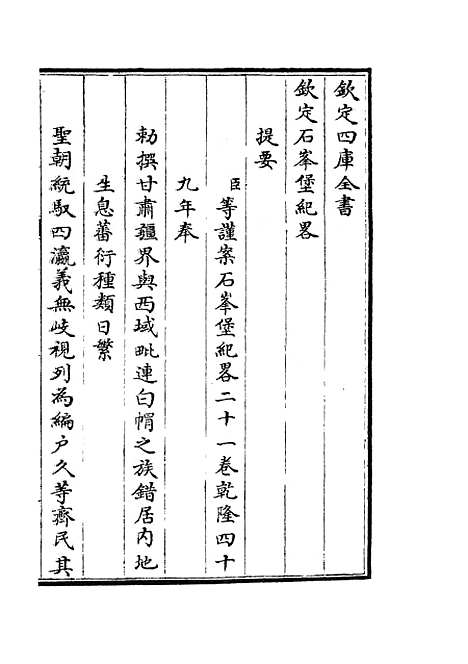 欽定四庫全書
欽定石峯堡紀畧
提要
臣等謹案石峯堡紀畧二十一卷乾隆四十
九年奉
勅撰甘肅疆界與西域毗連白帽之族錯居内地
生息蕃衍種類日繁
聖朝統馭四瀛義無歧視列為編户久等齊民其